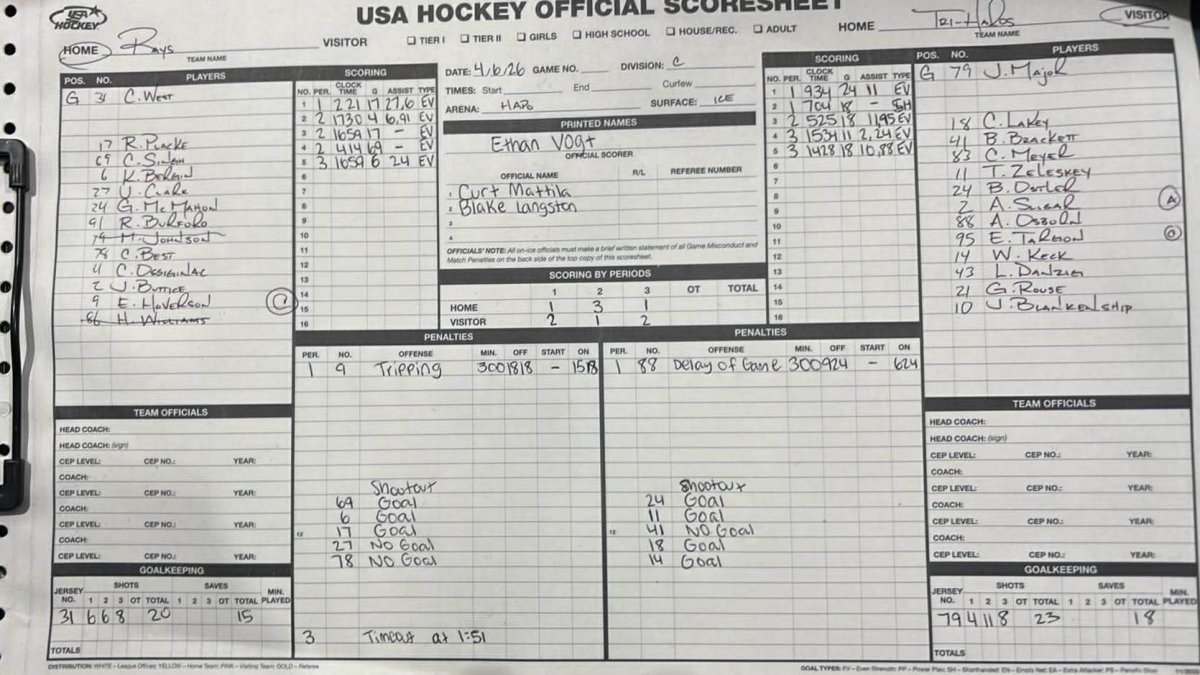 USA HOCKEY
USA HOCKEY OFFICIAL SCORESHEET
HOME Rays VISITOR
TEAM NAME
☐ TIER I ☐ TIER II ☐ GIRLS ☐ HIGH SCHOOL ☐ HOUSE/REC. ☐ ADULT
HOME TRI-HABS VISITOR
TEAM NAME
POS. NO. PLAYERS
G 31 C. WEST
17 R. PLACKE
69 C. SINGH
6 K. BERGIN
27 J. CLARK
24 G. McMAHON
91 R. BURFORD
74 M. JOHNSON
78 C. BEST
4 C. DESIGINAC
2 J. BUTTICE
9 E. HOVERSON C
86 H. WILLIAMS
SCORING
NO. PER. CLOCK TIME G ASSIST TYPE
1 1 221 17 27,6 EV
2 2 1730 4 6,91 EV
3 2 1659 17 - EV
4 2 414 69 - EV
5 3 1059 6 24 EV
6
7
8
9
10
11
12
13
14
15
16
DATE: 4/6/26 GAME NO. DIVISION: C
TIMES: Start End Curfew
ARENA: HABS SURFACE: ICE
PRINTED NAMES
Ethan Vogt
OFFICIAL SCORER
OFFICIAL NAME R/L REFEREE NUMBER
1 Curt Mattila
2 Blake Langston
3
4
OFFICIALS' NOTE: All on-ice officials must make a brief written statement of all Game Misconduct and
Match Penalties on the back side of the top copy of this scoresheet.
SCORING BY PERIODS
1 2 3 OT TOTAL
HOME 1 3 1
VISITOR 2 1 2
SCORING
NO. PER. CLOCK TIME G ASSIST TYPE
1 1 934 24 11 EV
2 1 704 18 - SH
3 2 525 18 11,95 EV
4 3 1534 11 2,24 EV
5 3 1428 18 10,88 EV
6
7
8
9
10
11
12
13
14
15
16
POS. NO. PLAYERS
G 79 J. Major
18 C. LAKEY
41 B. BRACKETT
83 C. MEYER
11 T. ZELESKEY
24 B. OSTLER
2 A. SLIGAR A
88 A. OSBORN
95 E. TARGON
14 W. KECK
43 L. DANZIG
21 G. ROUSE
10 J. BLANKENSHIP
PENALTIES
PER. NO. OFFENSE MIN. OFF START ON
1 9 Tripping 300 1818 - 1518
Shootout
69 Goal
6 Goal
17 Goal
27 No Goal
78 No Goal
12
3 Timeout at 1:51
PENALTIES
PER. NO. OFFENSE MIN. OFF START ON
1 88 Delay of Game 300 924 - 624
Shootout
24 Goal
11 Goal
41 No Goal
18 Goal
14 Goal
12
TEAM OFFICIALS
HEAD COACH:
HEAD COACH: (sign)
CEP LEVEL: CEP NO.: YEAR:
COACH:
CEP LEVEL: CEP NO.: YEAR:
COACH:
CEP LEVEL: CEP NO.: YEAR:
COACH:
CEP LEVEL: CEP NO.: YEAR:
GOALKEEPING
JERSEY NO. SHOTS 1 2 3 OT TOTAL SAVES 1 2 3 OT TOTAL MIN. PLAYED
31 6 6 8 20 15
TOTALS
TEAM OFFICIALS
HEAD COACH:
HEAD COACH: (sign)
CEP LEVEL: CEP NO.: YEAR:
COACH:
CEP LEVEL: CEP NO.: YEAR:
COACH:
CEP LEVEL: CEP NO.: YEAR:
COACH:
CEP LEVEL: CEP NO.: YEAR:
GOALKEEPING
JERSEY NO. SHOTS 1 2 3 OT TOTAL SAVES 1 2 3 OT TOTAL MIN. PLAYED
79 4 11 8 23 18
TOTALS
DISTRIBUTION: WHITE – League Offices; YELLOW – Home Team; PINK – Visiting Team; GOLD – Referee
GOAL TYPES: EV – Even Strength; PP – Power Play; SH – Shorthanded; EN – Empty Net; EA – Extra Attacker; PS – Penalty Shot